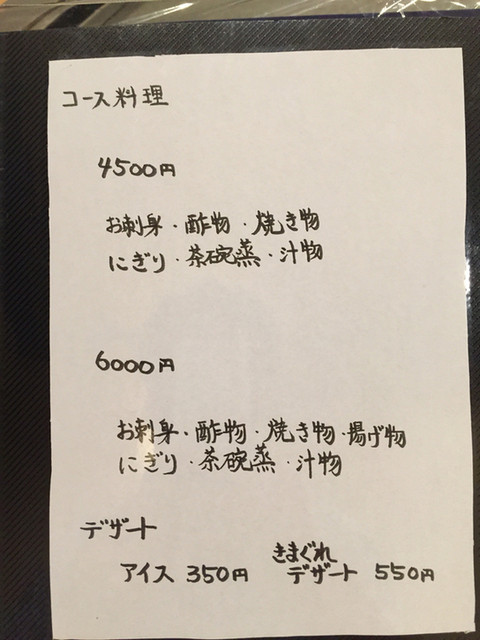 コース料理
4500円
お刺身・酢物・焼き物
にぎり・茶碗蒸・汁物
6000円
お刺身・酢物・焼き物・揚げ物
にぎり・茶碗蒸・汁物
デザート
アイス 350円 きまぐれデザート 550円